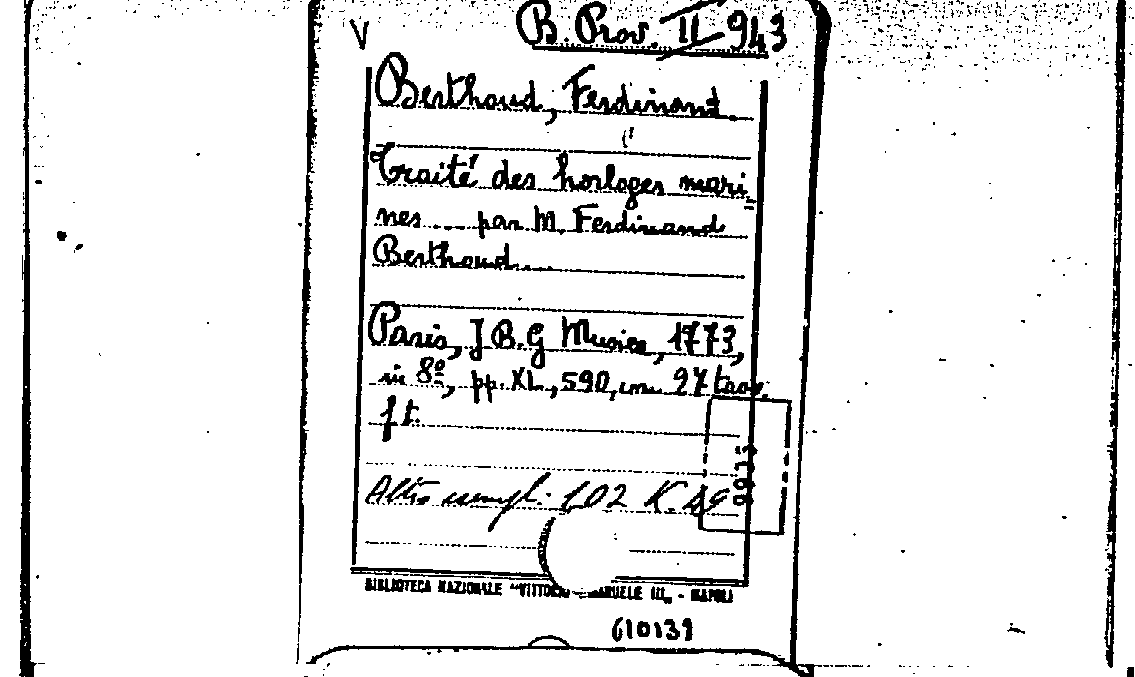 V
B. Prov. II 943
Berthoud, Ferdinand.
Traité des horloges mari
nes .... par M. Ferdinand
Berthoud....
Paris, J B. G Musier, 1773,
in 8º, pp. XL, 590, con 27 tav.
f t.
Altro esempl: 102 K. 19
BIBLIOTECA NAZIONALE "VITTORIO EMANUELE III" - NAPOLI
610139